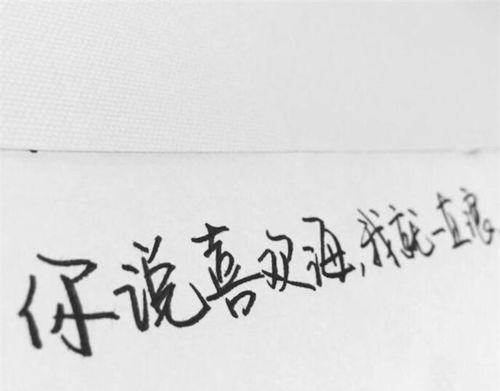 你说喜欢海,我就一直浪.